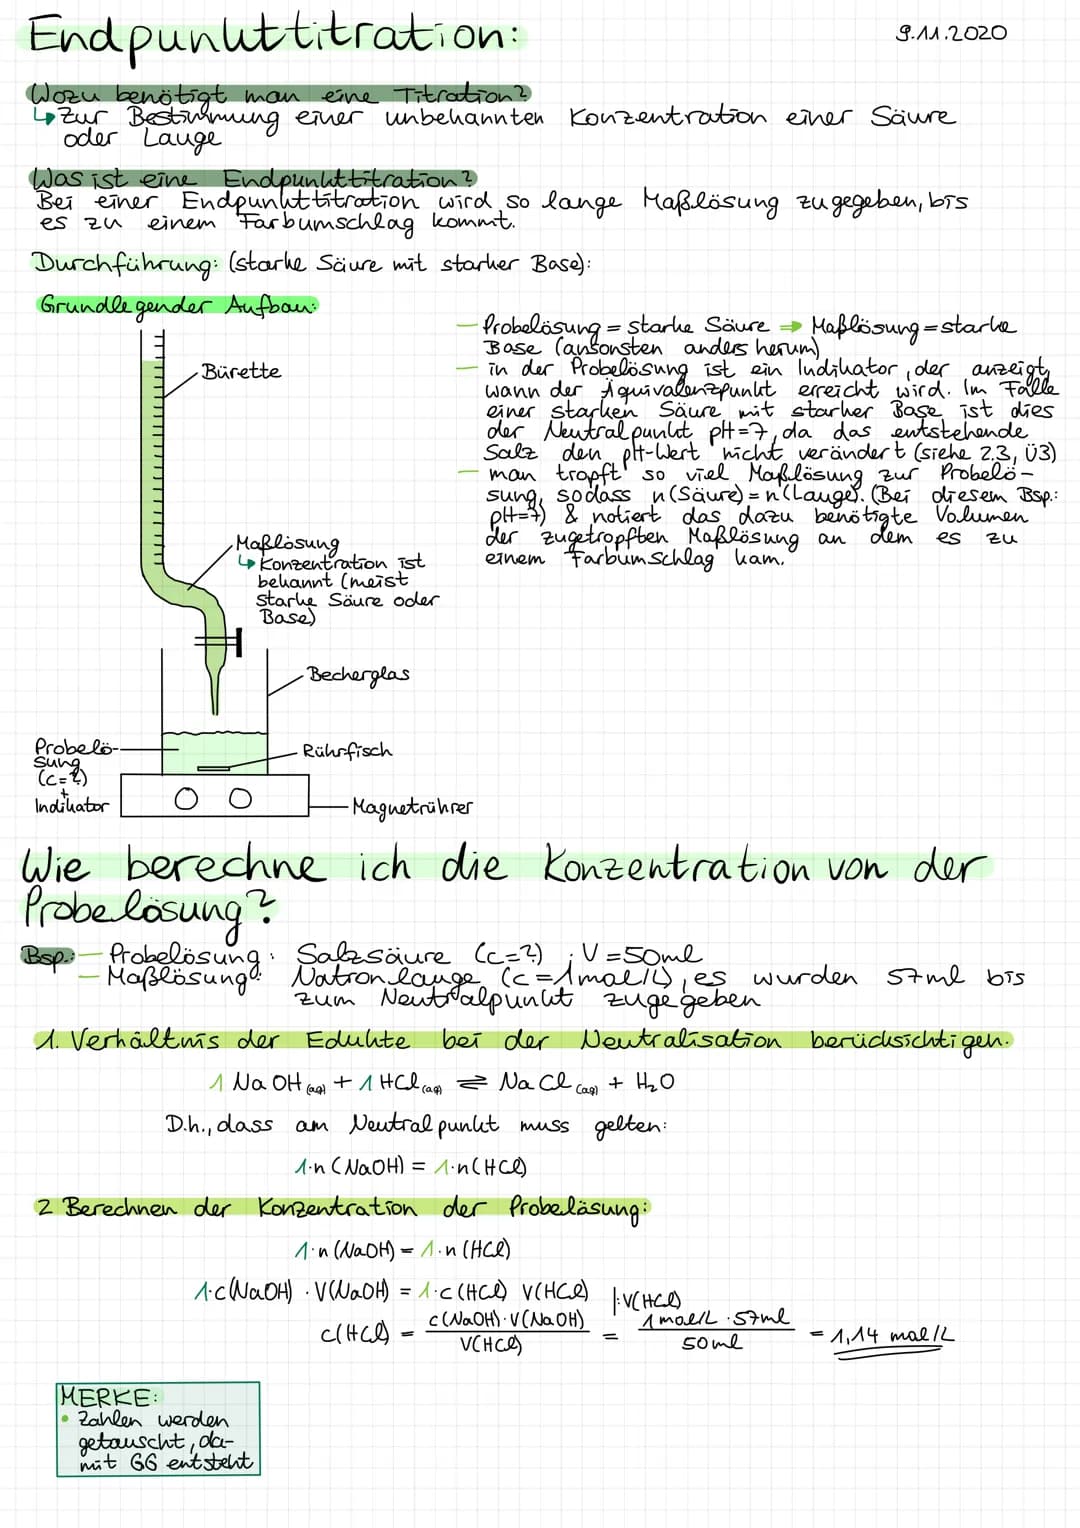 Endpunkttitration:
9.11.2020
Wozu benötigt man eine Titration?
↳ Zur Bestimmung einer unbekannten Konzentration einer Säure
oder Lauge
Was ist eine Endpunkttitration?
Bei einer Endpunkttitration wird so lange Maßlösung zugegeben, bis
es zu einem Farbumschlag kommt.
Durchführung: (starke Säure mit starker Base):
Grundlegender Aufbau:
Bürette
Maßlösung
↳ Konzentration ist
bekannt (meist
starke Säure oder
Base)
Becherglas
Probelö-
sung
(c=?)
+
Indikator
Rührfisch
Magnetrührer
– Probelösung = starke Säure ⇒ Maßlösung = starke
Base (ansonsten anders herum)
– in der Probelösung ist ein Indikator, der anzeigt,
wann der Äquivalenzpunkt erreicht wird. Im Falle
einer starken Säure mit starker Base ist dies
der Neutralpunkt pH=7, da das entstehende
Salz den pH-Wert nicht verändert (siehe 2.3, Ü3)
– man tropft so viel Maßlösung zur Probelö-
sung, sodass n(Säure) = n(Lauge). (Bei diesem Bsp.:
pH=7) & notiert das dazu benötigte Volumen
der zugetropften Maßlösung an dem es zu
einem Farbumschlag kam.
Wie berechne ich die Konzentration von der
Probelösung?
Bsp.: – Probelösung: Salzsäure (c=?) ; V=50ml
– Maßlösung: Natronlauge (c=1mol/L), es wurden 57ml bis
zum Neutralpunkt zugegeben
1. Verhältnis der Edukte bei der Neutralisation berücksichtigen.
1 NaOH (aq) + 1 HCl (aq) ⇌ NaCl (aq) + H₂O
D.h., dass am Neutralpunkt muss gelten:
1·n(NaOH) = 1·n(HCl)
2 Berechnen der Konzentration der Probelösung:
1·n(NaOH) = 1·n(HCl)
1·c(NaOH) · V(NaOH) = 1·c(HCl) V(HCl) |:V(HCl)
c(HCl) = c(NaOH)·V(NaOH) / V(HCl) = 1mol/L · 57ml / 50ml = 1,14 mol/L
MERKE:
• Zahlen werden
getauscht, da-
mit GG entsteht